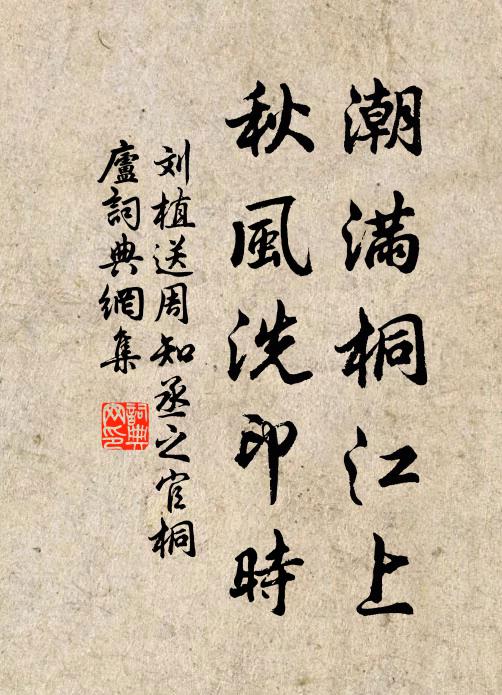 潮满桐江上
秋風洗印時
刘植送周知丞之官桐
廬詞典網集
詞典网印